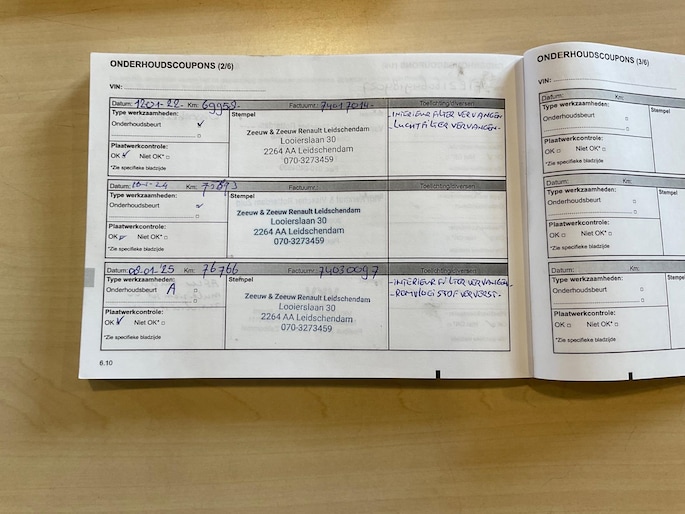 ONDERHOUDSCOUPONS (2/6)
VIN:
Datum: 1201-22- Km: 69958- Factuurnr.: 74017014- Toelichting/diversen
Type werkzaamheden:
Onderhoudsbeurt
Stempel
Zeeuw & Zeeuw Renault Leidschendam
Looierslaan 30
2264 AA Leidschendam
070-3273459
- INTERIEUR FILTER VERVANGEN
- LUCHTFILTER VERVANGEN-
Plaatwerkcontrole:
OK Niet OK*
*Zie specifieke bladzijde
Datum: Km: Factuurnr.: Toelichting/diversen
Type werkzaamheden:
Onderhoudsbeurt
Stempel
Zeeuw & Zeeuw Renault Leidschendam
Looierslaan 30
2264 AA Leidschendam
070-3273459
Plaatwerkcontrole:
OK Niet OK*
*Zie specifieke bladzijde
Datum: 08-01-'25 Km: 76766 Factuurnr.: 74030097 Toelichting/diversen
Type werkzaamheden:
Onderhoudsbeurt A
Stempel
Zeeuw & Zeeuw Renault Leidschendam
Looierslaan 30
2264 AA Leidschendam
070-3273459
- INTERIEUR FILTER VERVANGEN-
- REMVLOEISTOF VERVERST-
Plaatwerkcontrole:
OK Niet OK*
*Zie specifieke bladzijde
6.10
ONDERHOUDSCOUPONS (3/6)
VIN:
Datum: Km:
Type werkzaamheden:
Onderhoudsbeurt
Stempel
Plaatwerkcontrole:
OK Niet OK*
*Zie specifieke bladzijde
Datum: Km:
Type werkzaamheden:
Onderhoudsbeurt
Stempel
Plaatwerkcontrole:
OK Niet OK*
*Zie specifieke bladzijde
Datum: Km:
Type werkzaamheden:
Onderhoudsbeurt
Stempel
Plaatwerkcontrole:
OK Niet OK*
*Zie specifieke bladzijde